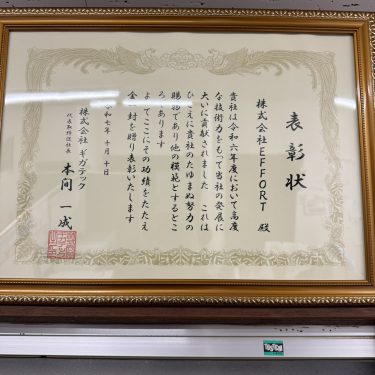 表彰状
株式会社EFFORT 殿
貴社は令和六年度において高度
な技術力をもって当社の発展に
大いに貢献されました これは
ひとえに貴社のたゆまぬ努力の
賜物であり他の模範とするとこ
ろであります
よってここにその功績をたたえ
金一封を贈り表彰いたします
令和七年 十月 十日
株式会社 ギガテック
代表取締役社長
本間 一成